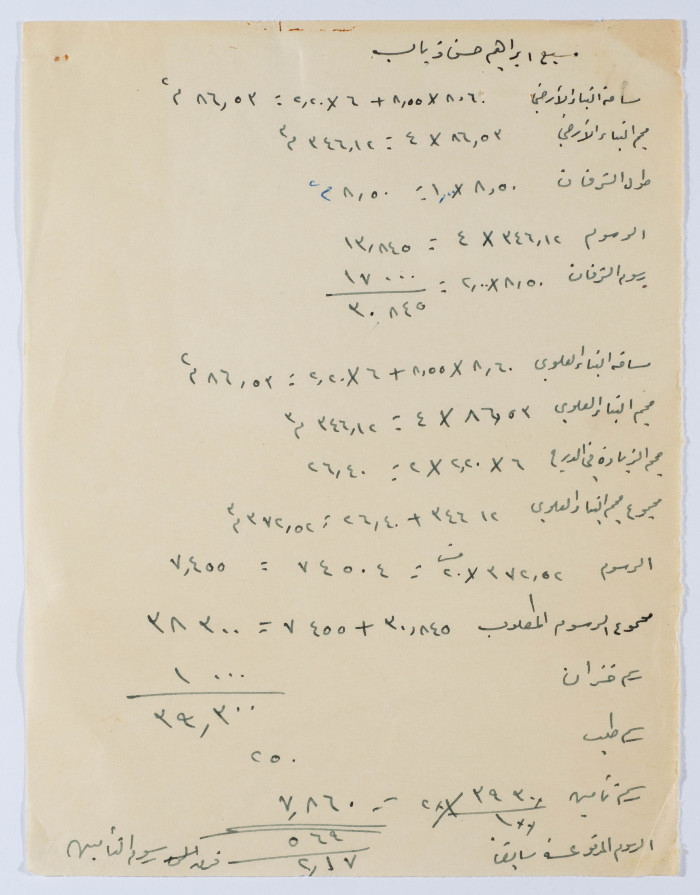 سميع ابراهيم حسن ذياب
مساحة البناء الأرضي ٨،٦٠ × ٨،٥٥ + ٦ × ٢،٢٠ = ٨٦،٥٣ م٢
حجم البناء الأرضي ٨٦،٥٣ × ٤ = ٣٤٦،١٢ م٣
طول الترفان ٨،٥٠ × ١،٠٠ = ٨،٥٠ م٢
الرسوم ٣٤٦،١٢ × ٤ = ١٣،٨٤٥
رسوم الترفان ٨،٥٠ × ٢،٠٠ = ١٧ ٠٠٠
٣٠ ٨٤٥
مساحة البناء العلوي ٨،٦٠ × ٨،٥٥ + ٦ × ٢،٢٠ = ٨٦،٥٣ م٢
حجم البناء العلوي ٨٦،٥٣ × ٤ = ٣٤٦،١٢ م٣
حجم الزيادة في الدرج ٦ × ٢،٢٠ × ٢ = ٢٦،٤٠
مجموع حجم البناء العلوي ٣٤٦ ١٢ + ٢٦،٤٠ = ٣٧٢،٥٢ م٣
الرسوم ٣٧٢،٥٢ × ٢٠ = ٧٤٥٠٤ = ٧،٤٥٥
مجموع الرسوم المطلوب ٣٠،٨٤٥ + ٧٤٥٥ = ٣٨ ٣٠٠
رسم خزان ١ ٠٠٠
٣٩،٣٠٠
رسم طلب ٢٥٠
رسم تأمين ٣٩ ٣٠٠ × ٢٠ / ١٠٠ = ٧،٨٦٠
الرسوم المدفوعة سابقا ٥٦٩
٢،١٧ رسوم التأمين